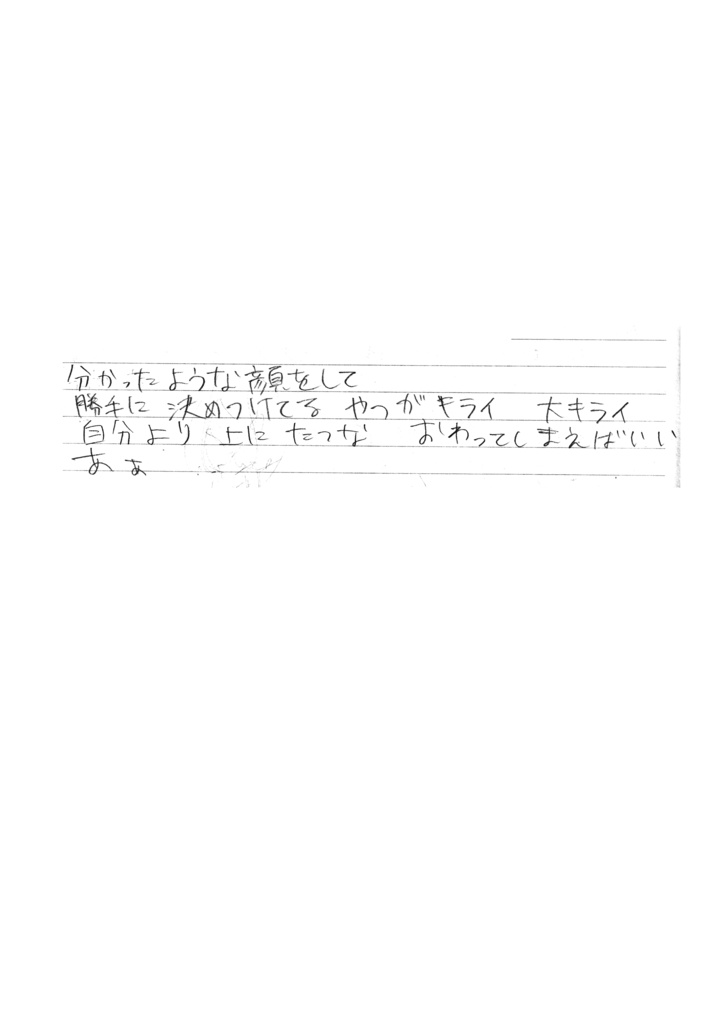 分かったような顔をして
勝手に 決めつけてる やつが キライ 大キライ
自分より 上に たつな おわってしまえばいい
あぁ